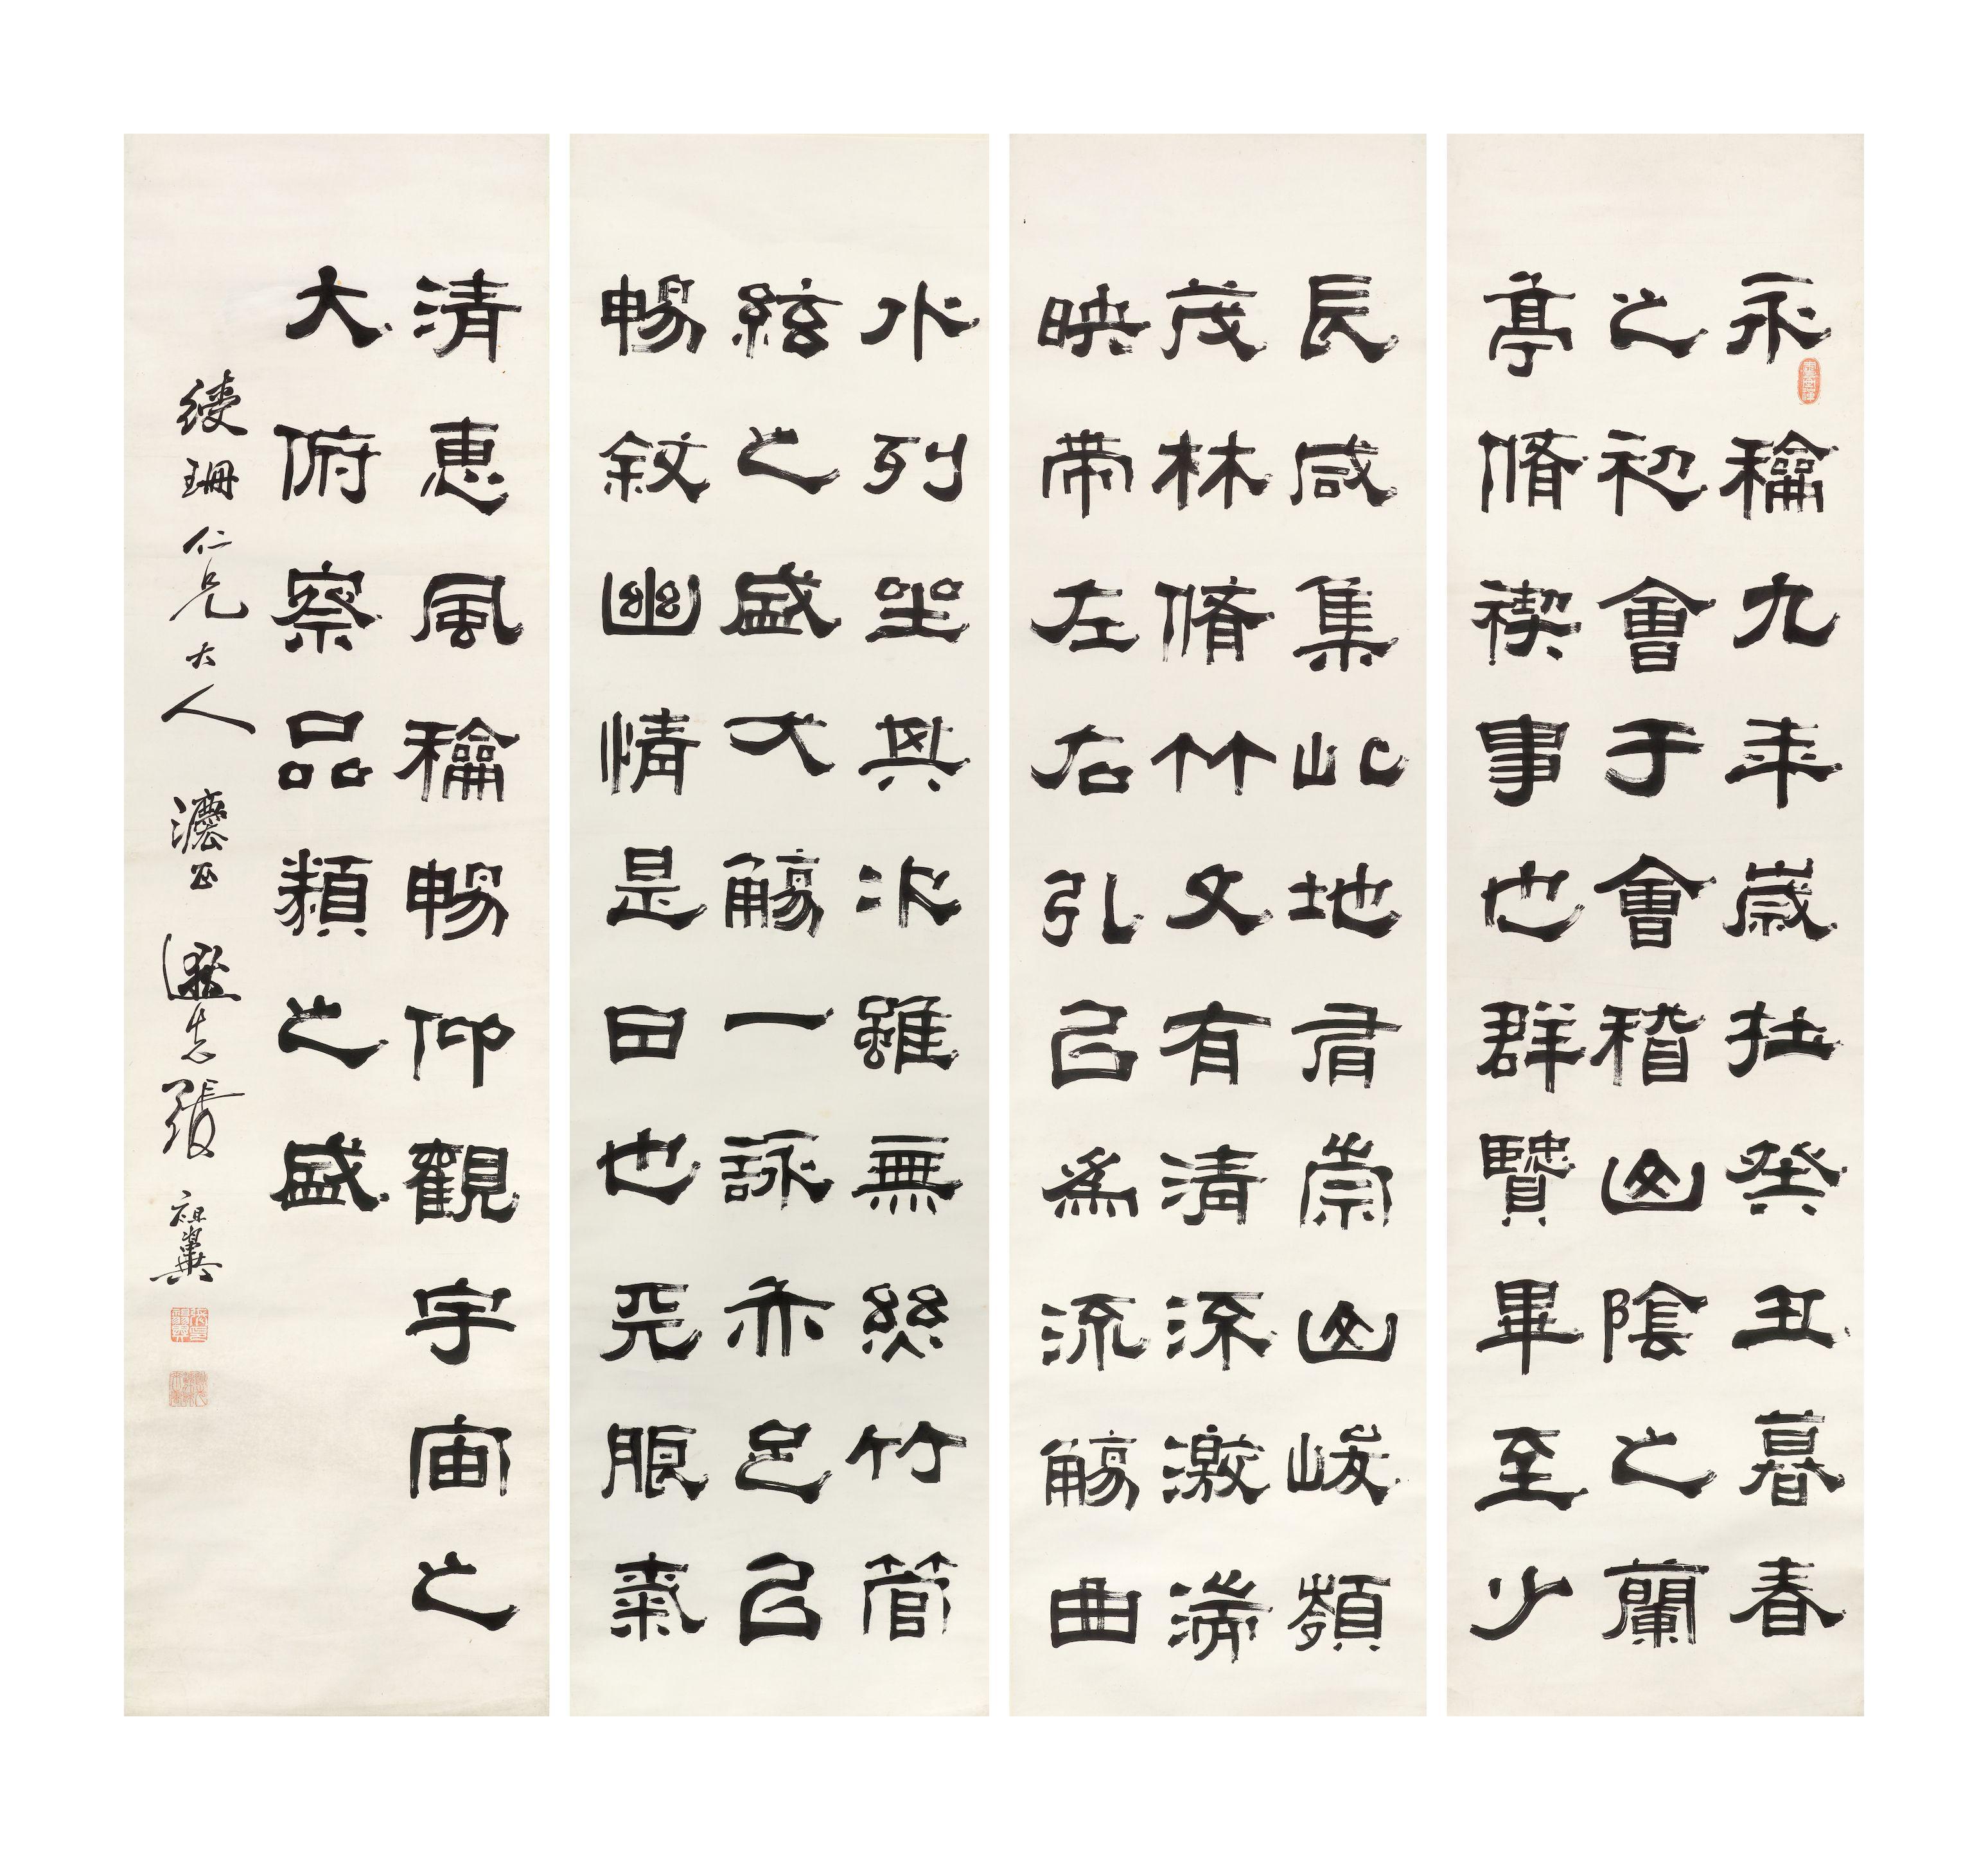 永龢九年歲扗癸丑暮春
之初會于會稽山陰之蘭
亭脩禊事也群賢畢至少
長咸集此地有崇山峻嶺
茂林脩竹又有清流激湍
映帶左右引以為流觴曲
水列坐其次雖無絲竹管
絃之盛一觴一詠亦足以
暢敘幽情是日也天朗氣
清惠風龢暢仰觀宇宙之
大俯察品類之盛
綬珊仁兄大人 灋正 先張祖翼